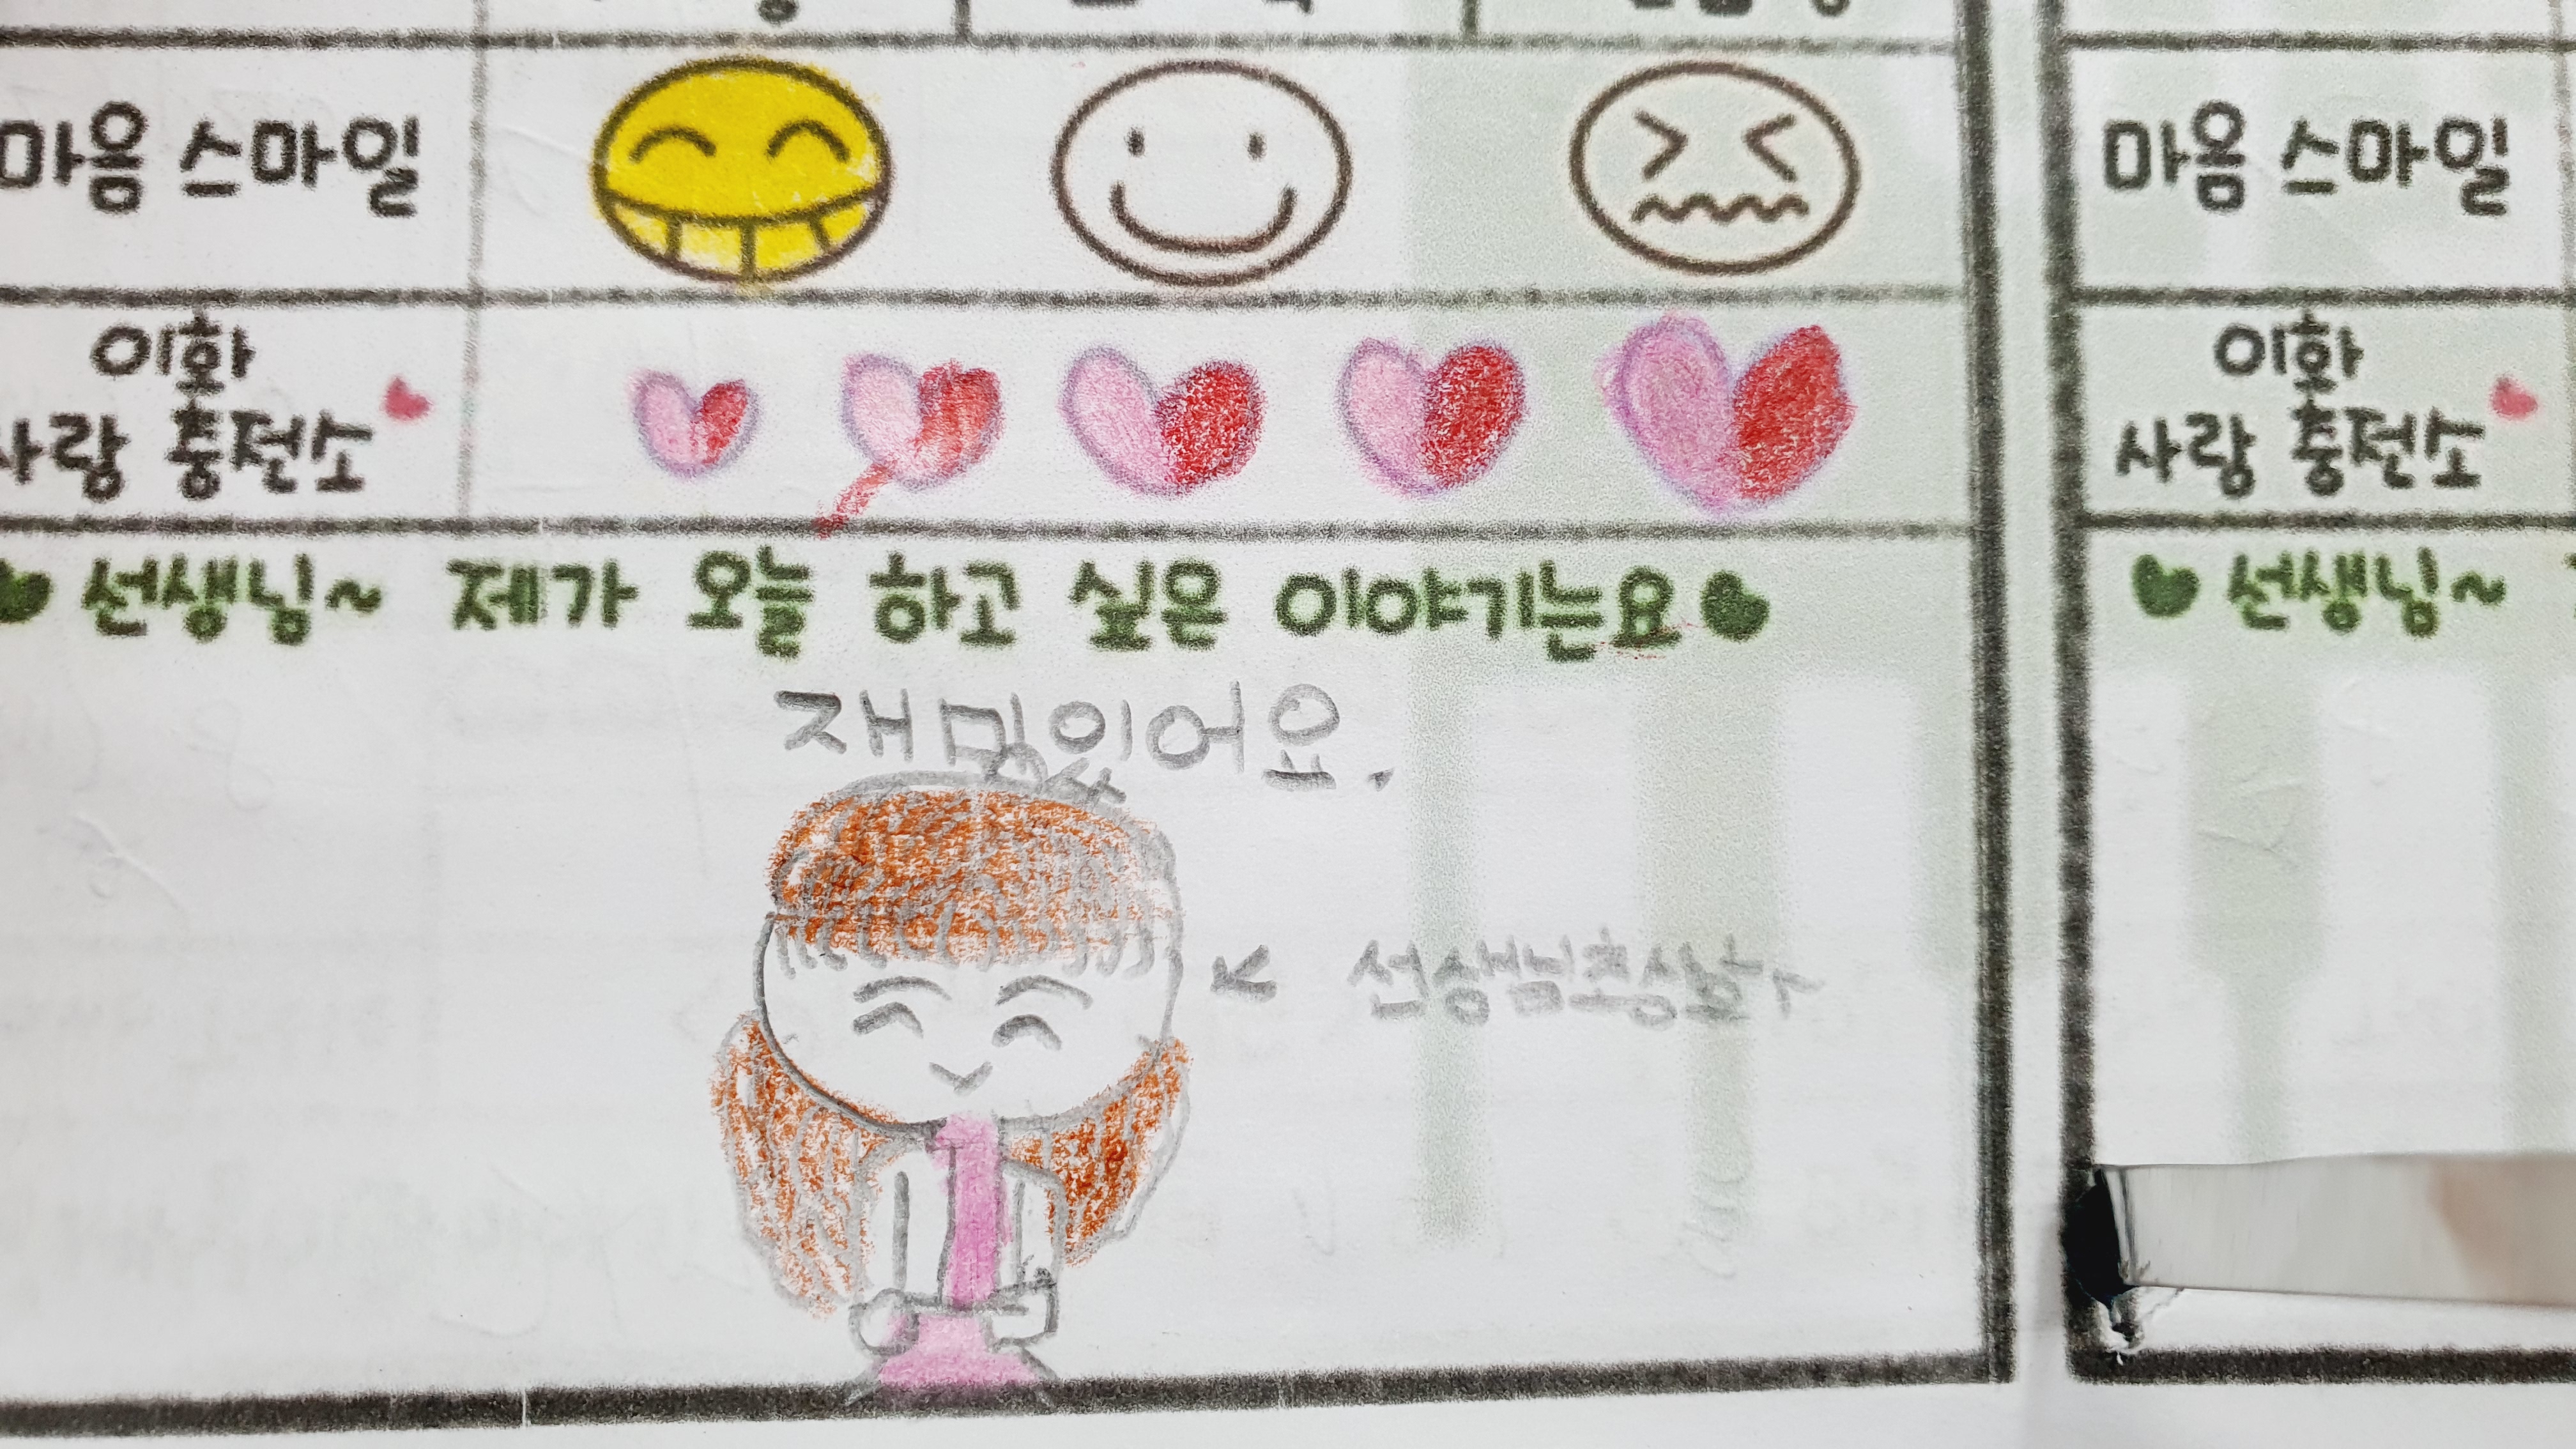 마음 스마일
이화
사랑 충전소
선생님~ 제가 오늘 하고 싶은 이야기는요
재밌있어요.
선생님초상화
마음 스마일
이화
사랑 충전소
선생님~